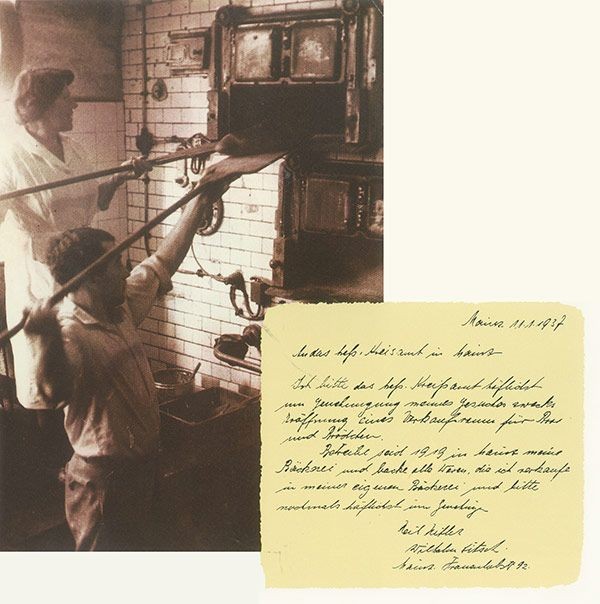 Mainz 11.1.1937
An das hess. Kreisamt in Mainz
Ich bitte das hess. Kreisamt höflichst
um Genehmigung meines Gesuches zwecks
Eröffnung eines Verkaufsraum für Brot
und Brödchen.
Betreibe seid 1919 in Mainz meine
Bäckerei und backe alle Waren, die ich verkaufe
in meiner eigenen Bäckerei und bitte
nochmals höflichst um Genehmig
Heil Hitler
Wilhelm
Mainz. Frauenlobstr 92.